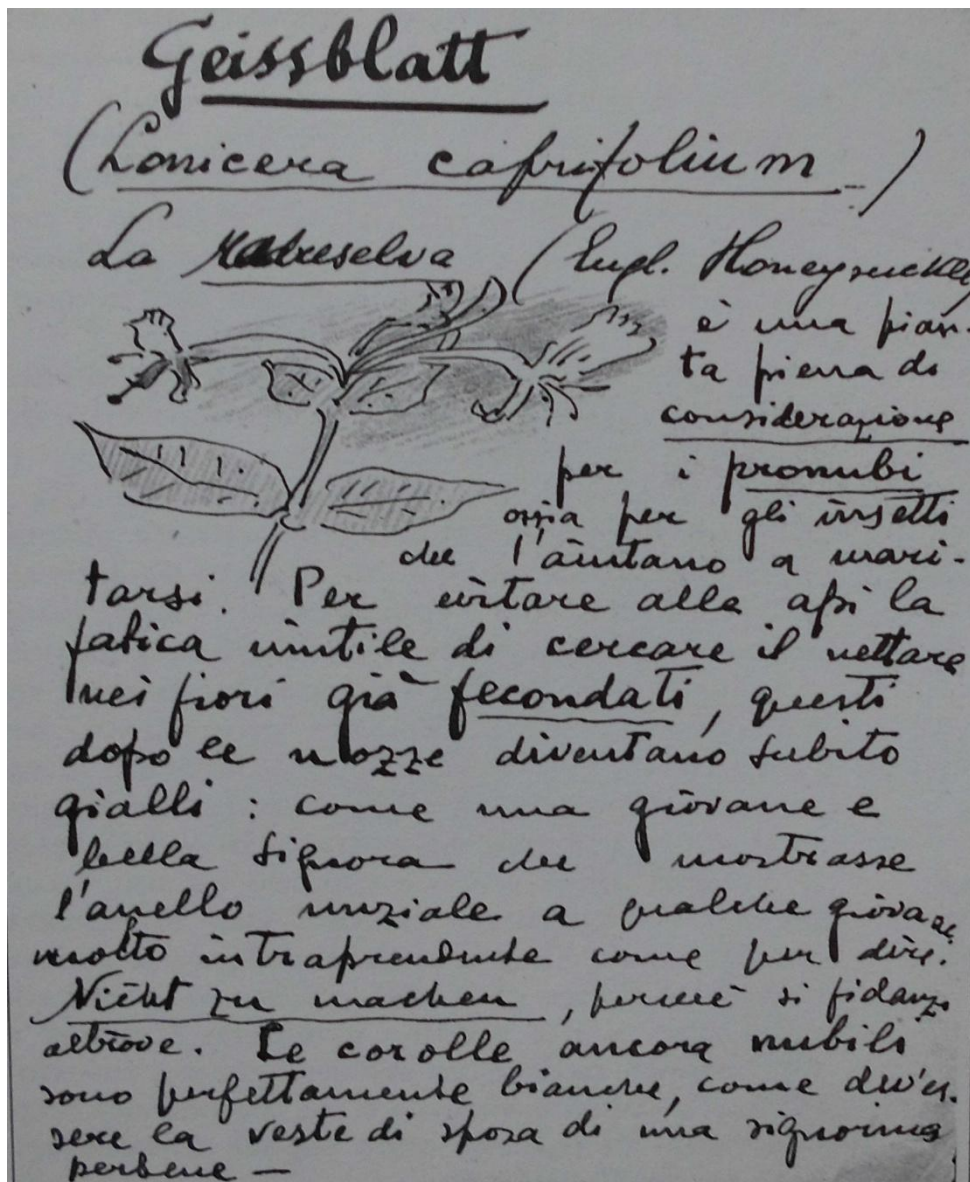 Geissblatt
(Lonicera caprifolium)
La madreselva (Engl. Honeysuckle)
è una pian-
ta piena di
considerazione
per i pronubi
ossia per gli insetti
che l'aiutano a mari-
tarsi. Per evitare alle api la
fatica inutile di cercare il nettare
nei fiori già fecondati, questi
dopo le nozze diventano subito
gialli: come una giovane e
bella signora che mostrasse
l'anello nuziale a qualche giovane
molto intraprendente come per dire.
Nicht zu machen, perché si fidanzi
altrove. Le corolle ancora nubili
sono perfettamente bianche, come dev'es-
sere la veste di sposa di una signorina
perbene —